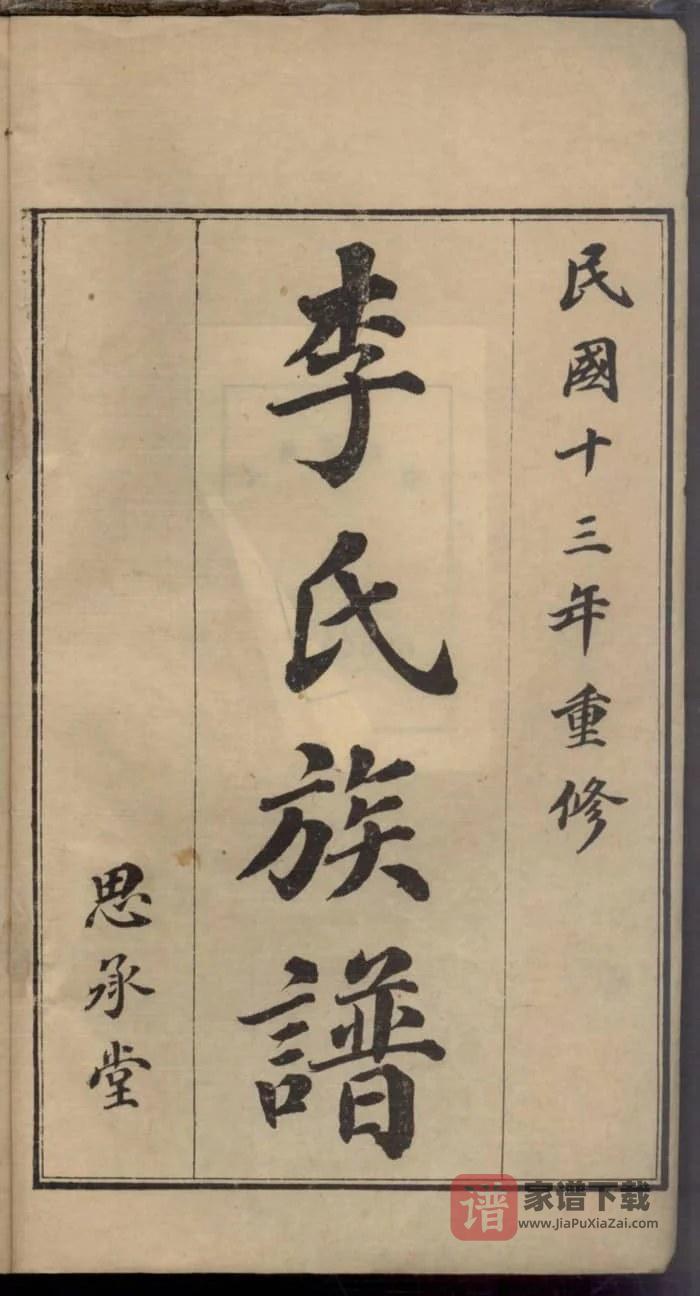 民國十三年重修
李氏族譜
思承堂
谱
家谱下载
www.JiaPuXiaZai.com